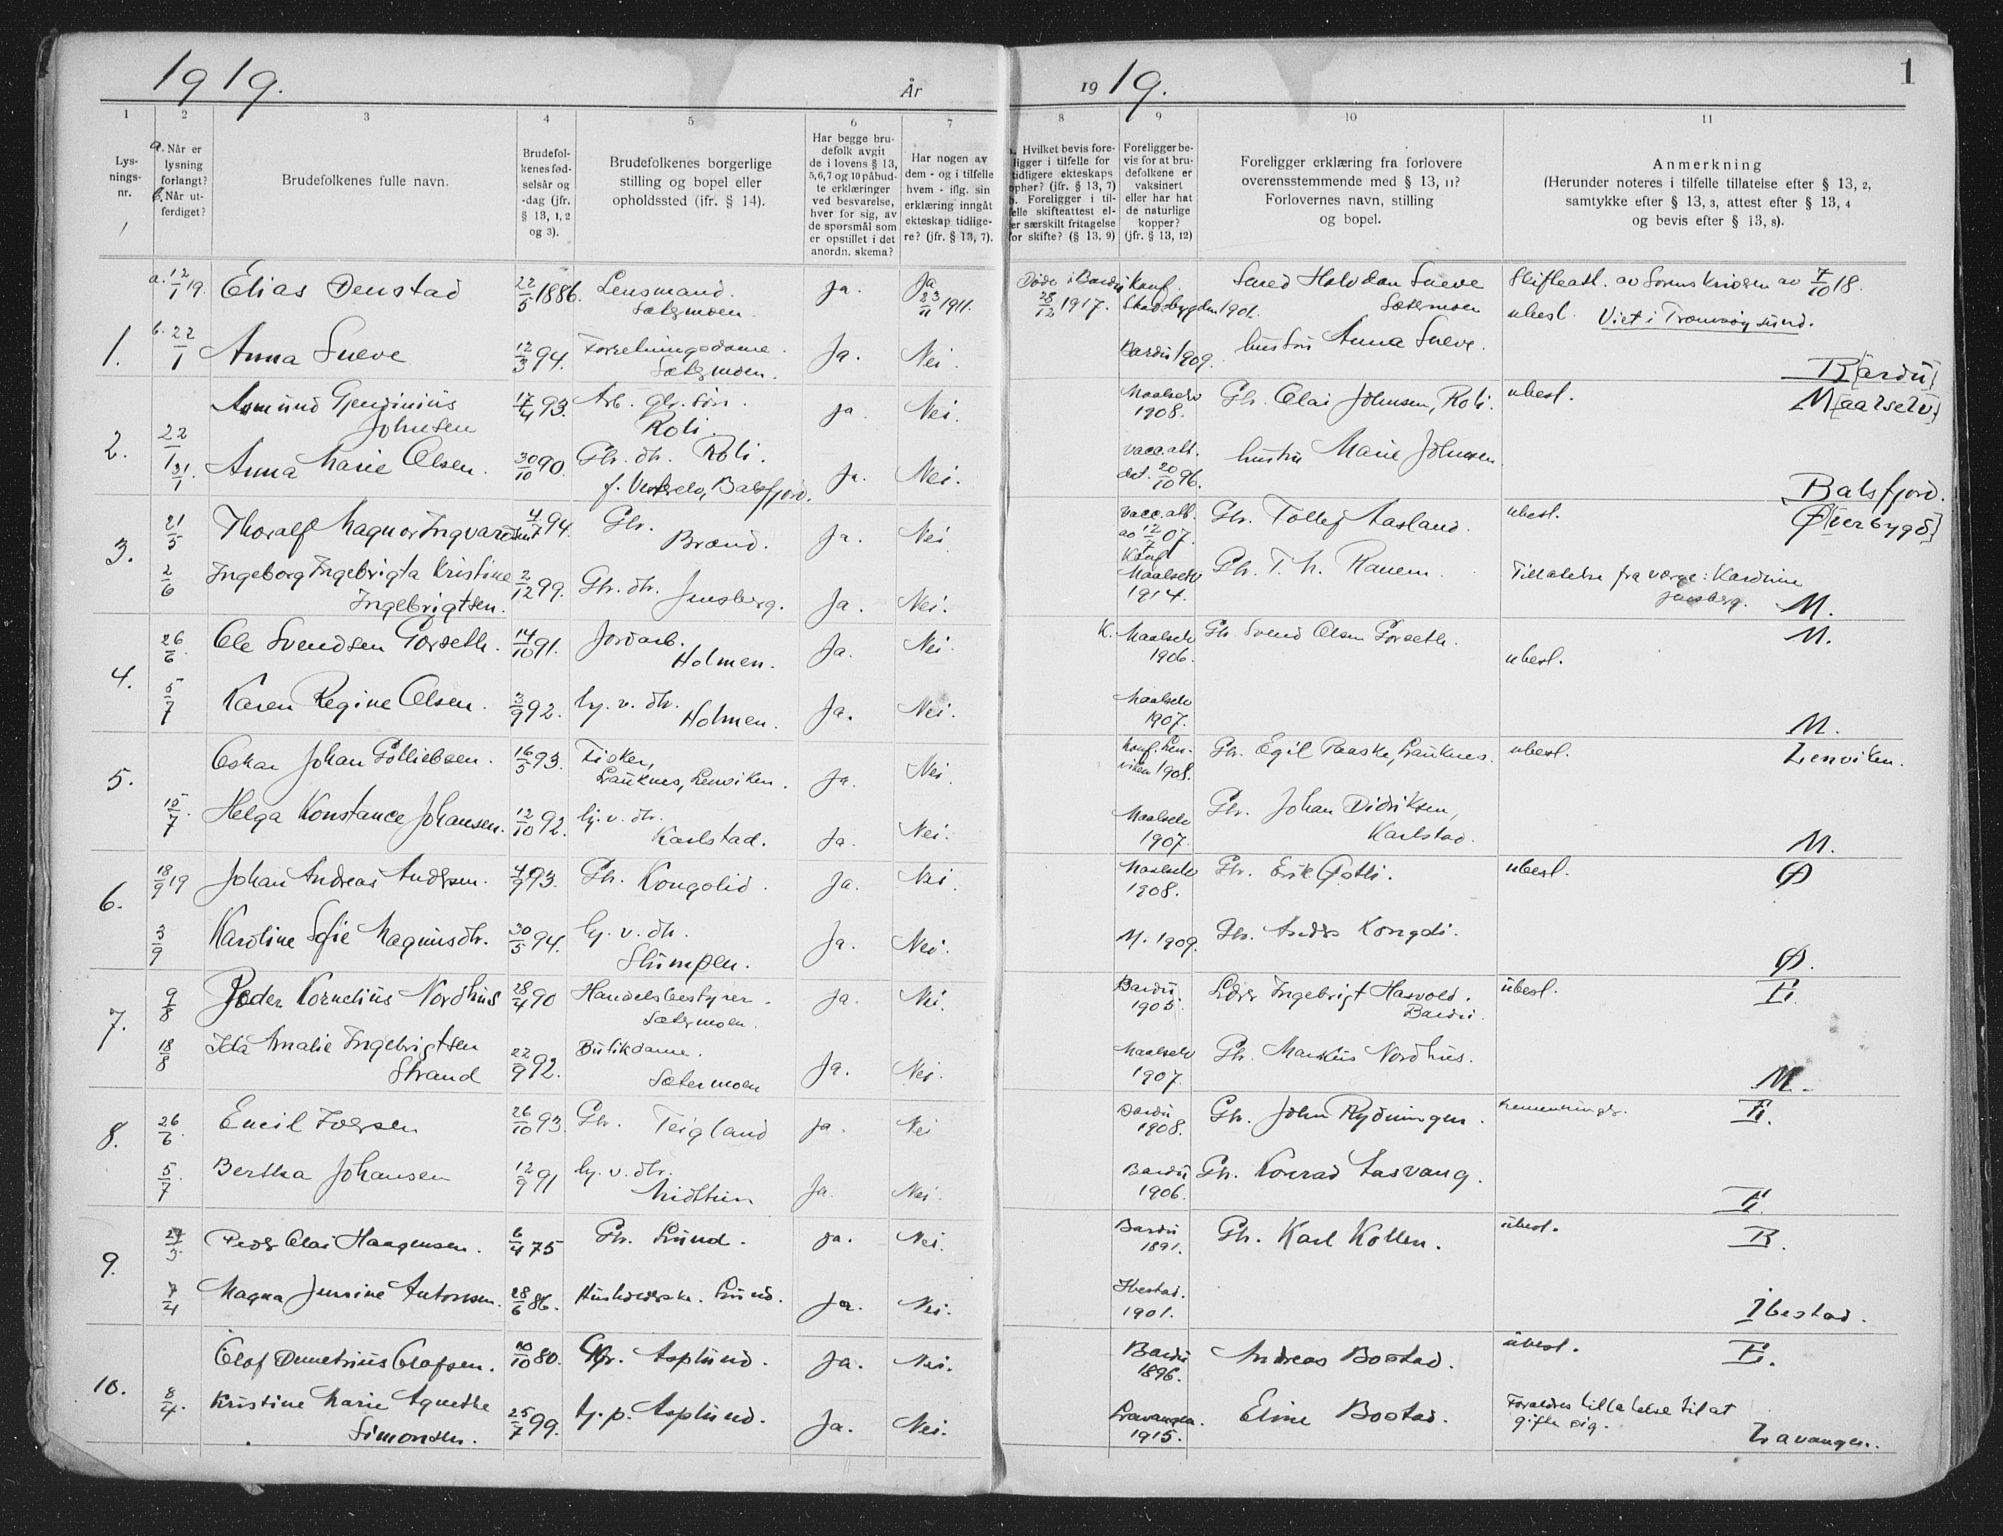 1919.
År
1919.
1
1
2
3
4
5
6
7
8
9
10
11
Lysningsnr.
a. Når er lysning forlangt? b. Når utferdiget?
Brudefolkenes fulle navn.
Brudefolkenes fødselsår og -dag (jfr. § 13, 1, 2 og 3).
Brudefolkenes borgerlige stilling og bopel eller opholdssted (jfr. § 14).
Har begge brudefolk avgit de i lovens § 13, 5, 6, 7 og 10 påbudte erklæringer ved besvarelse, hver for sig, av de spørsmål som er opstillet i det anordn. skema?
Har nogen av dem - og i tilfelle hvem - iflg. sin erklæring inngåt ekteskap tidligere? (jfr. § 13, 7).
a. Hvilket bevis foreligger i tilfelle for tidligere ekteskaps ophør? (jfr. § 13, 7) b. Foreligger i tilfelle skifteattest eller særskilt fritagelse for skifte? (§ 13, 9)
Foreligger bevis for at brudefolkene er vaksinert eller har hat de naturlige kopper? (jfr. § 13, 12)
Foreligger erklæring fra forlovere overensstemmende med § 13, 11? Forlovernes navn, stilling og bopel.
Anmerkning (Herunder noteres i tilfelle tillatelse efter § 13, 2, samtykke efter § 13, 3, attest efter § 13, 4 og bevis efter § 13, 8).
a. 12/1 19. Elias Denstad 22/5 1886. Lensmand. Sætermoen. Ja. Ja 23/11 1911. Døde i Bardu 28/12 1917. Konf. Stadsbygden 1901. Smed Halvdan Sneve Sætermoen Skifteatt. av Sorenskriven av 7/10 18. ubesl. Viet i Tromsøysund.
1. b. 22/1 Anna Sneve 12/3 94. Forretningsdame. Sætermoen. Ja. Nei. Bardu 1909. hustru Anna Sneve. B[ardu]
Asmund Gjendinius Johnsen 17/4 93. Arb. gbr. søn. Roli. Ja. Nei. Maalselv 1908. Gb. Olai Johnsen, Roli. ubesl. M[aalselv]
2. 22/1 31/1. Anna Marie Olsen. 30/10 90. Gb. dtr. Roli. f. Ja. Nei. vacc.att. dat. 20/10 96. hustru Marie Johnsen. Balsfjord.
3. 21/5 Thoralf Magnor 4/7 94. Gbr. Brænd. Ja. Nei. vacc.att. av 12/7 07. Gb. Tollef Aasland. ubesl. Ø[verbygd]
2/6 Ingeborg Ingebrigta Kristine Ingebrigtsen. 2/12 99. Gbr. dtr. Jensberg. Ja. Nei. Konf. Maalselv 1914. Gb. T. M. Ranem. Tillatelse fra værge: Kardine Jensberg. M.
4. 26/6 Ole Svendsen Forseth. 14/10 91. Jordarb. Holmen. Ja. Nei. K. Maalselv 1906. Gb. Svend Olsen Forseth. ubesl. M.
5/7 Karen Regine Olsen. 3/9 92. hj. v. dtr. Holmen. Ja. Nei. Maalselv 1907. M.
5. Oskar Johan Gotliebsen. 16/5 93. Fisker, Lauknes, Lenviken. Ja. Nei. konf. Lenviken 1908. Gb. Egil Paaske, Lauknes. ubesl. Lenviken.
15/7 Helga Konstance Johansen. 12/10 92. hj. v. dtr. Karlstad. Ja. Nei. Maalselv 1907. Gb. Johan Didriksen, Karlstad. M.
6. 18/9 19 Johan Andreas Andersen. 4/9 93. Gb. Kongslid. Ja. Nei. Maalselv 1908. Gbr. Erik ubesl. Ø
3/9 Karoline Sofie Magnusdtr. 30/5 94. hj. v. dtr. Slumpen. Ja. Nei. M. 1909. Gb. Anders Ø.
7. 9/8 Peder Kornelius Nordhus 28/4 90 Handelsbestyrer. Sætermoen. Ja. Nei. Bardu 1905. Ingebrigt Harvold. Bardu ubesl. B.
18/8 Ida Amalie Ingebrigtsen Strand 22/9 92. Butikdame. Sætermoen Ja. Nei. Maalselv 1907. Gb. Markus Nordhus. M.
8. 26/6 Emil Iversen 26/10 93. Gb. Teigland Ja. Nei Bardu 1908. Gb. John Rydningen. B.
5/7 Bertha Johansen 12/9 91 hj. v. dtr. Midttun Ja. Nei. Bardu 1906. Gb. Konrad Aasvang. B
9. 27/3 Peder Olai Haagensen. 6/4 75 Gb. Lund. Ja. Nei. Bardu 1891. Gb. Karl Kollen. ubesl. B.
7/4 Magna Jensine Antonsen. 28/6 86. Husholderske. Lund. Ja. Nei. Ibestad. 1901. Ibestad.
Olaf Demetrius Olafsen. 10/10 80. Gbr. Asplund. Ja. Nei. Bardu 1896. Andreas Bostad. ubesl. B.
10. 8/4. Kristine Marie Agnethe Simonsen. 25/7 99. tj. p. Asplund. Ja. Nei. Lavangen. 1915. Eline Bostad. Foreldres tillatelse til at gifte sig. Lavangen.